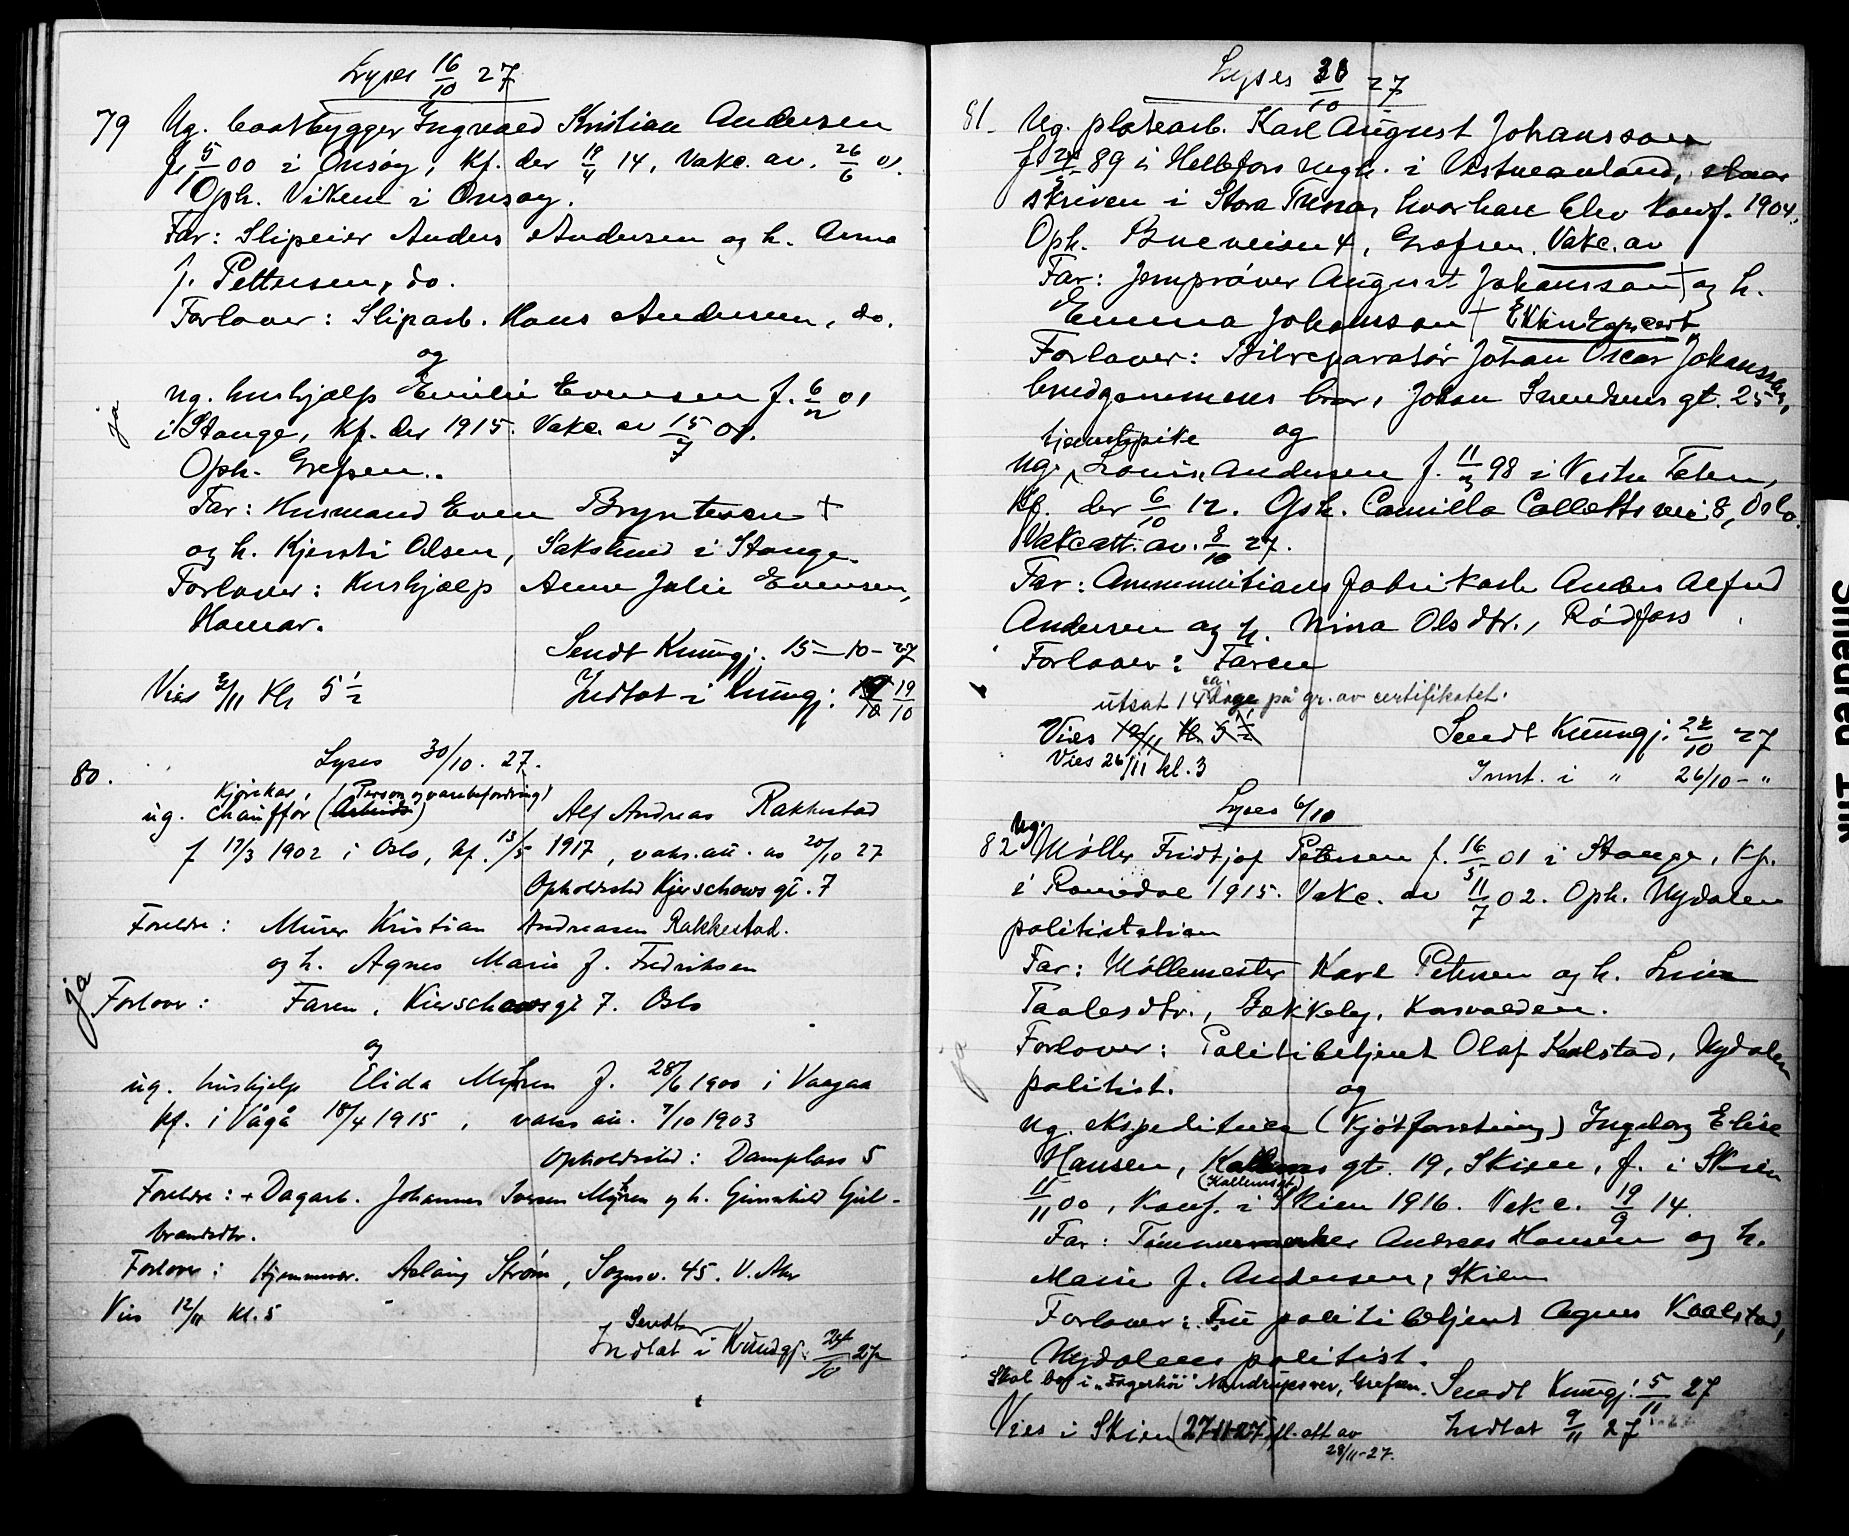 Lyses 16/10 27
79 Ug. baatbygger Ingvald Kristian Andersen
f. 5/1 00 i Onsøy, kf. der 19/4 14, vakc. av. 26/6 01.
Oph. Viken i Onsøy.
Far: Sliperier Anders Andersen og h. Anna
f. Pettersen, do.
Forlover: Sliparb. Hans Andersen, do.
og
ja
ug. hushjælp Emilie Evensen f. 6/2 01
i Stange, kf. der 1915. Vakc. av 15/7 01.
Oph. Grefsen.
Far: Husmand Even Bryntesen +
og h. Kjersti Olsen, Sakslund i Stange.
Forlover: Hushjælp Anne Julie Evensen,
Hamar.
Sendt Kunngj. 15-10-27
Vies 2/11 Kl 5 1/2 Indtat i Kunngj: 19/10
80. Lyses 30/10. 27.
Kjørekar, (Person og varebefordring)
ug. chauffør Alf Andreas Rakkestad
f 17/3 1902 i Oslo, kf. 13/5 1917, vaks.att. av 20/10 27
Opholdssted Kjerschows gt. 7
Foreldre: Murer Kristian Andreasen Rakkestad.
og h. Agnes Marie f. Fredriksen
ja
Forlover: Faren, Kierschowsgt 7. Oslo
og
ug. hushjelp Elida Myhren f. 28/6 1900 i Vaagaa
kf. i Vågå 18/4 1915, vaks att. 7/10 1903
Opholdssted: Damplass 5
Foreldre: + Dagarb. Johannes Iversen Myhren og h. Gunhild Gul-
brandsdtr.
Forlover: Hjemmevær. Aslaug Strøm, Sognsv. 45. V. Aker
Vies 12/11 kl. 5
Sendt
Indtat i Kundgj. 27
Lyses 30/10 27
81. Ug. platearb. Karl August Johansson
f. 89 i Hellefors i Vestmanland,
skreven i Stora Tuna, hvor han blev konf. 1904.
Oph. Bueveien 4, Grefsen. Vakc. av
Far: Jernprøver August Johansson + og h.
Emma Johansson +
Forlover: Bilreparatør Johan Oscar Johansson,
brudgommens bror, Johan Svendsens gt. 25
tjenestepike og
ug. Lovise Andersen f. 11/3 98 i Vestre Toten,
kf. der 6/10 12. Oph. Camilla Colletts vei 8, Oslo.
Vakc.att. av. 8/10 27.
Far: Ammunitions fabrikarb Anders Alfred
Andersen og h. Nina Olsdtr., Rødfoss
Forlover: Faren
utsat ca. 14 dage på gr. av certifikatet.
Vies 12/11 Kl. 5 1/2 Sendt Kunngj. 10 27
Vies 26/11 kl. 3 Innt. i " 26/10 - "
Lyses 6/10
82 Ug. Møller Fridtjof Petersen f. 16/5 01 i Stange, kf.
i Romedal 1915. Vakc. av 11/7 02. Oph. Nydalen
politistation
Far: Møllemester Karl Petersen og h. Lina
Paalesdtr., Bækkeby,
Forlover: Politibetjent Olaf Kaalstad, Nydalen
politist. og
ja
ug. ekspeditrice (kjøtforretning) Ingeborg Elise
Hansen, Kallems gt. 19, Skien, f. i Skien
(Kallemsgt)
11/11 00, Konf. i Skien 1916. Vakc. 19/9 14.
Far: Tømmermerker Andreas Hansen og h.
Marie f. Andersen, Skien
Forlover: Fru politibetjent Agnes Kaalstad,
Nydalens politist.
Skal bo i "Fagerhøi" Nandrupsvei, Grefsen. Sendt Kunngj. 5/11 27
Vies i Skien (27-11-27) fl. att av 28/11-27. Indtat 9/11 27
Smedrud Trk